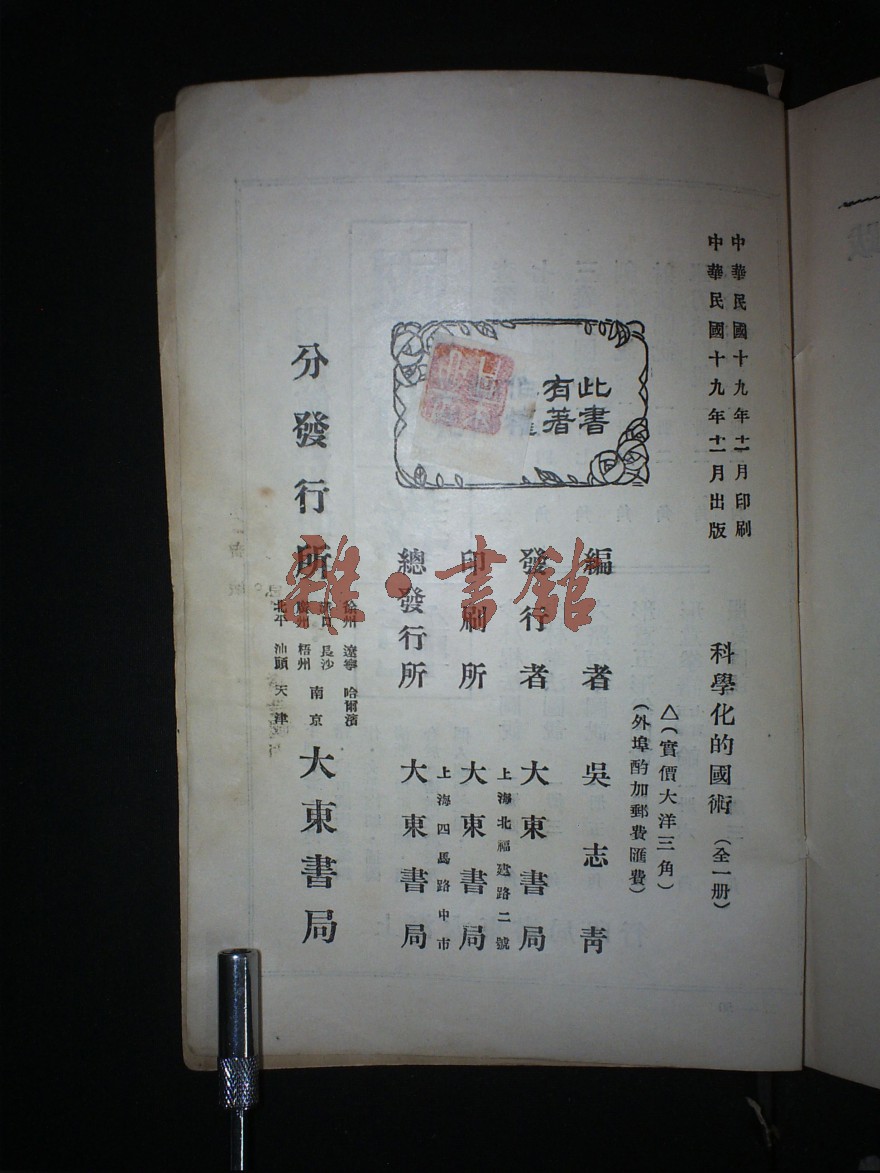 中華民國十九年十一月印刷
中華民國十九年十一月出版
科學化的國術（全一册）
△（實價大洋三角）
（外埠酌加郵費匯費）
編者 吳志青
發行者 大東書局
上海北福建路二號
印刷所 大東書局
上海四馬路中市
總發行所 大東書局
此書
有著
分發行所
徐州 遼寧 哈爾濱
長沙 南京
梧州
北平 汕頭 天津
大東書局
雜·書館